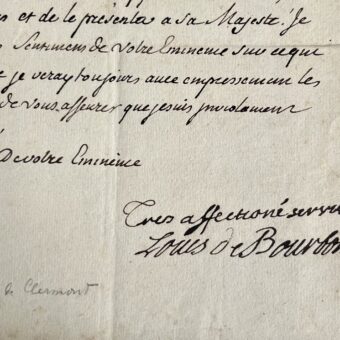 ns et de le presenter a Sa Majesté. Je
Sentimens de Votre Eminence sur ce qui
e je veray toujours avec empressement les
de vous asseurer que je suis parfaitement
De votre Eminence
Tres affectioné servi
Louis de Bourbon
de Clermont